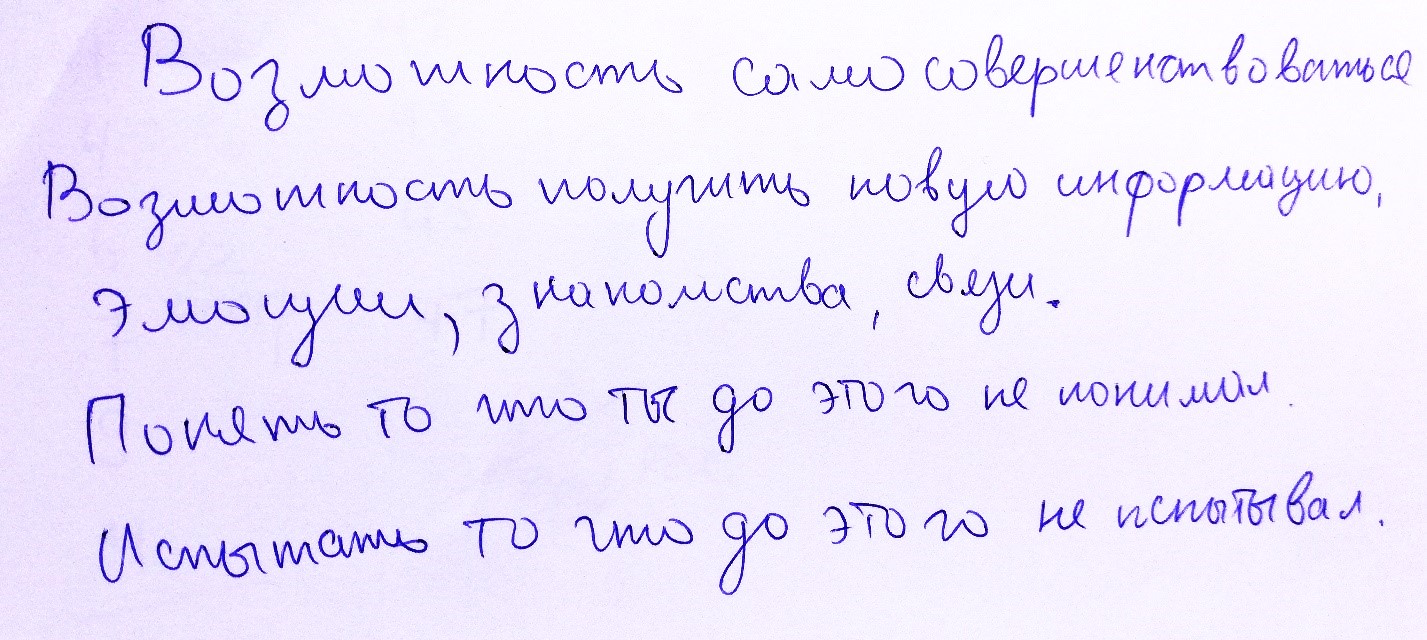 Возможность самосовершенствоваться
Возможность получить новую информацию,
эмоции, знакомства, связи.
Понять то что ты до этого не понимал.
Испытать то что до этого не испытывал.